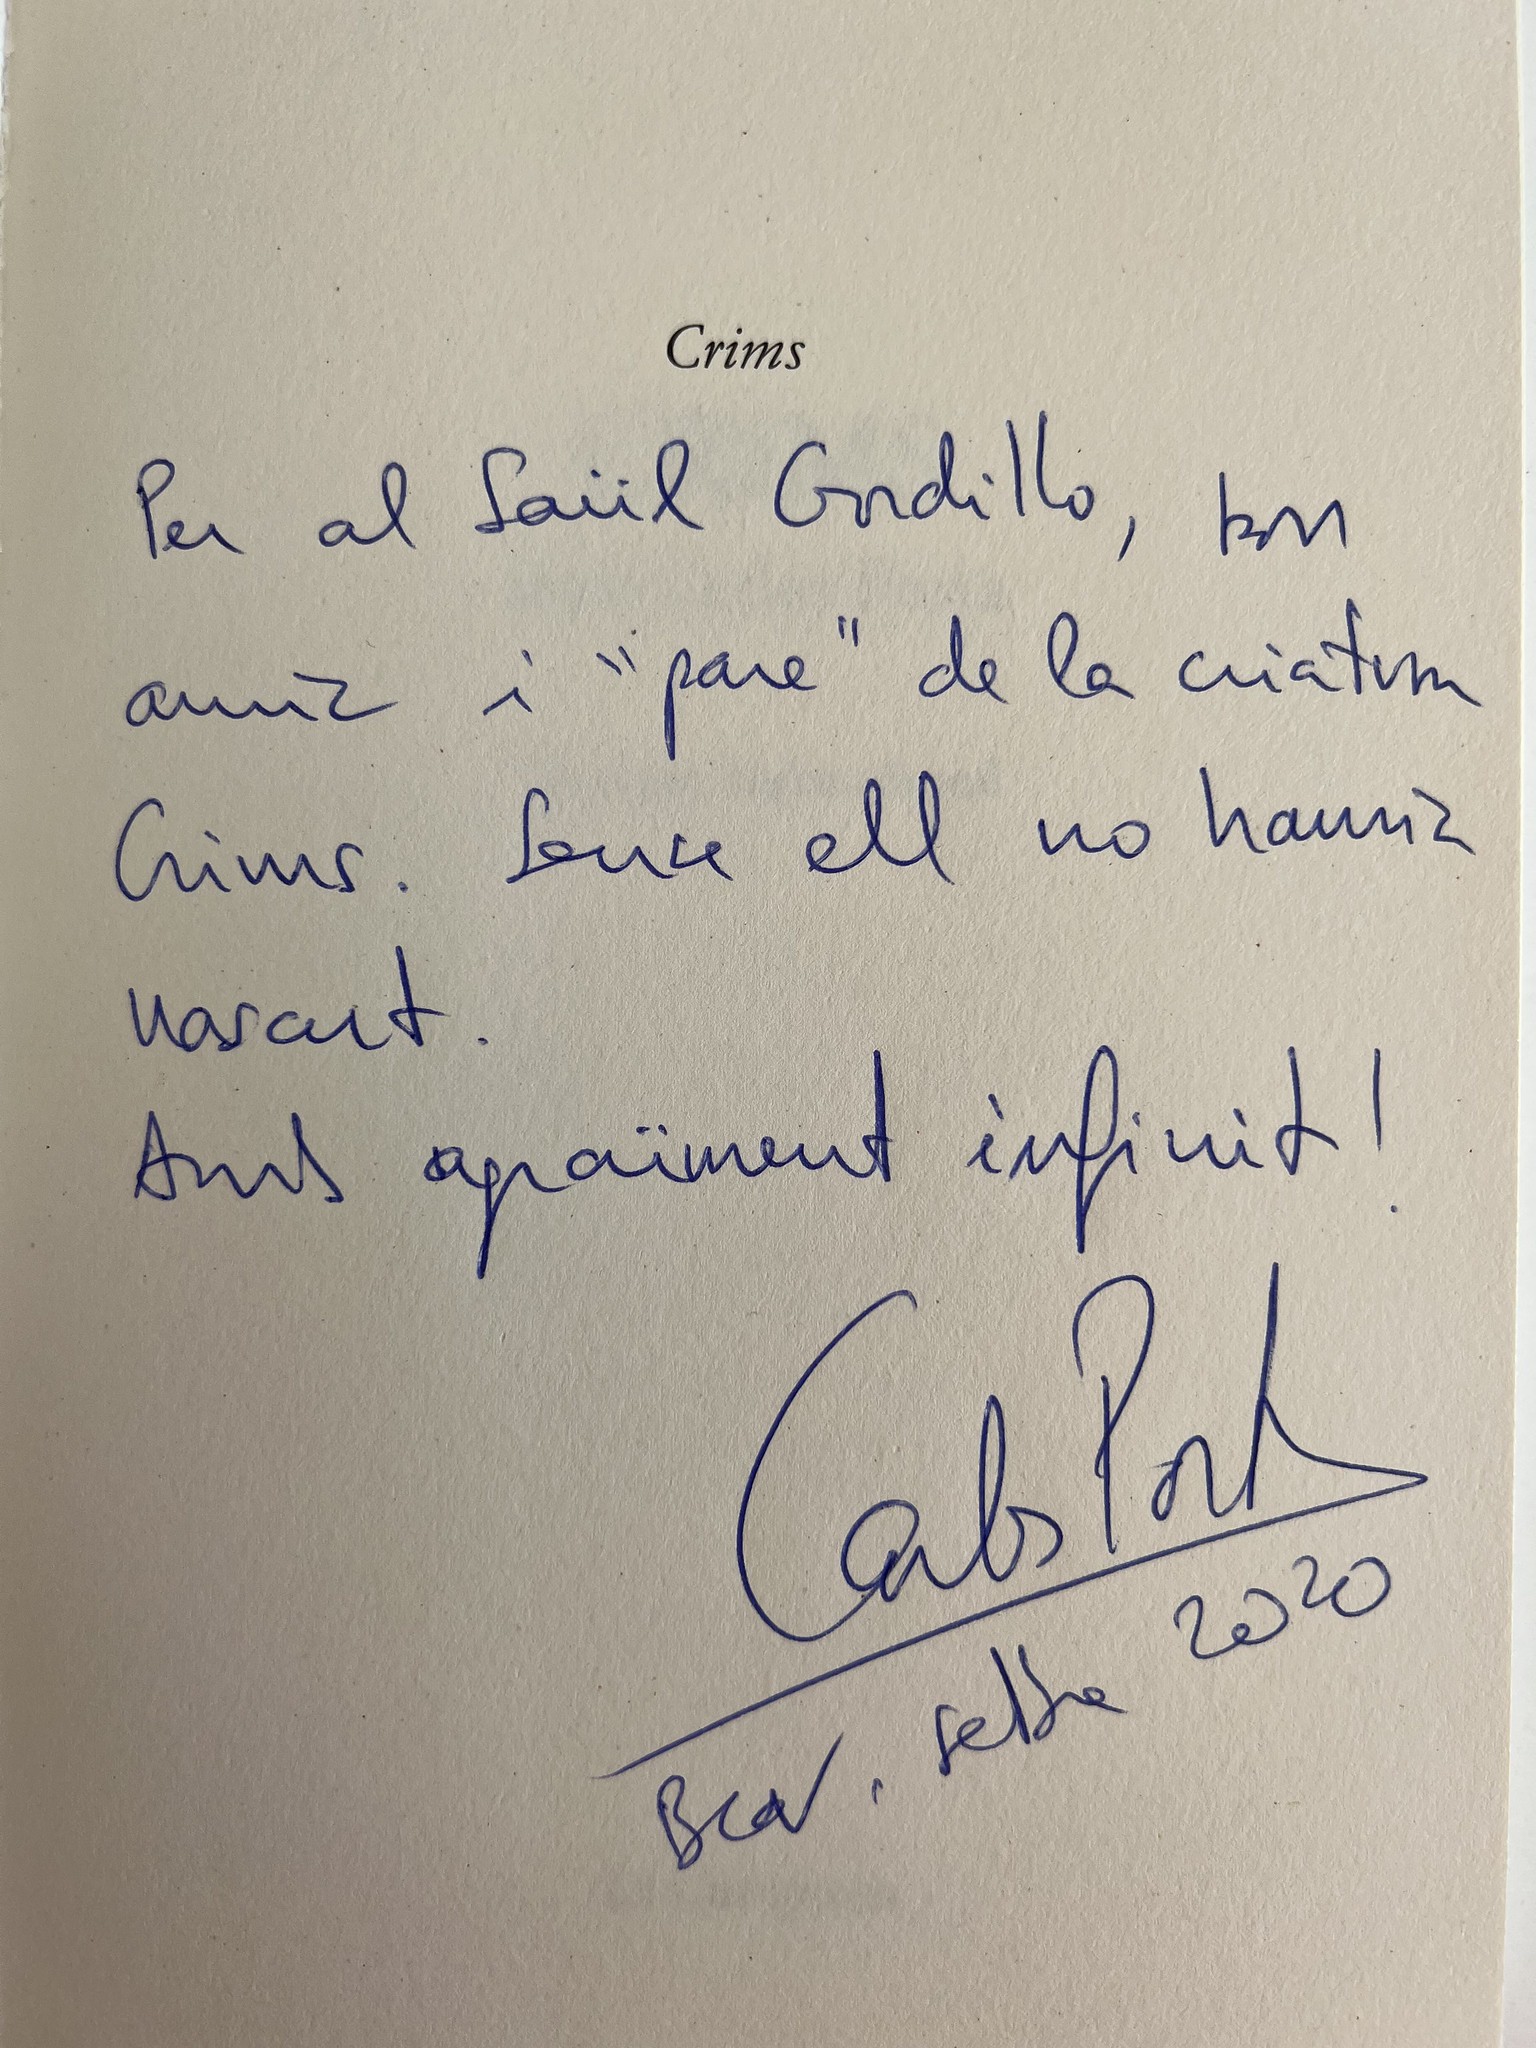 Crims
Per al Saül Gordillo, bon
amic i "pare" de la criatura
Crims. Sense ell no hauria
nascut.
Amb agraïment infinit!
Carles Porta
2020
Bcn, setbre